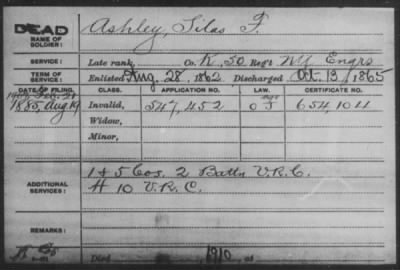 DEAD
NAME OF SOLDIER:
Ashley, Silas F.
SERVICE:
Late rank, Co. K, 50 Reg't NY Engrs
TERM OF SERVICE:
Enlisted Aug. 28, 1862 Discharged Oct. 13, 1865
DATE OF FILING. CLASS. APPLICATION NO. LAW. CERTIFICATE NO.
1885, Aug. 19 Invalid, 547,452 654,104
Widow,
Minor,
ADDITIONAL SERVICES:
1 & 5 Cos. 2 Battn V.R.C.
H 10 V.R.C.
REMARKS:
Died 1910, at